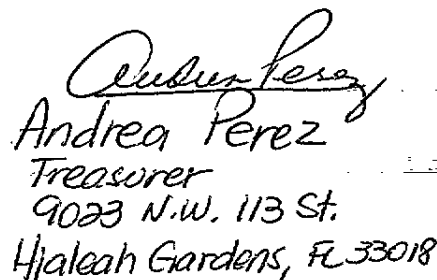 Andrea Perez
Andrea Perez
Treasurer
9023 N.W. 113 St.
Hialeah Gardens, FL 33018